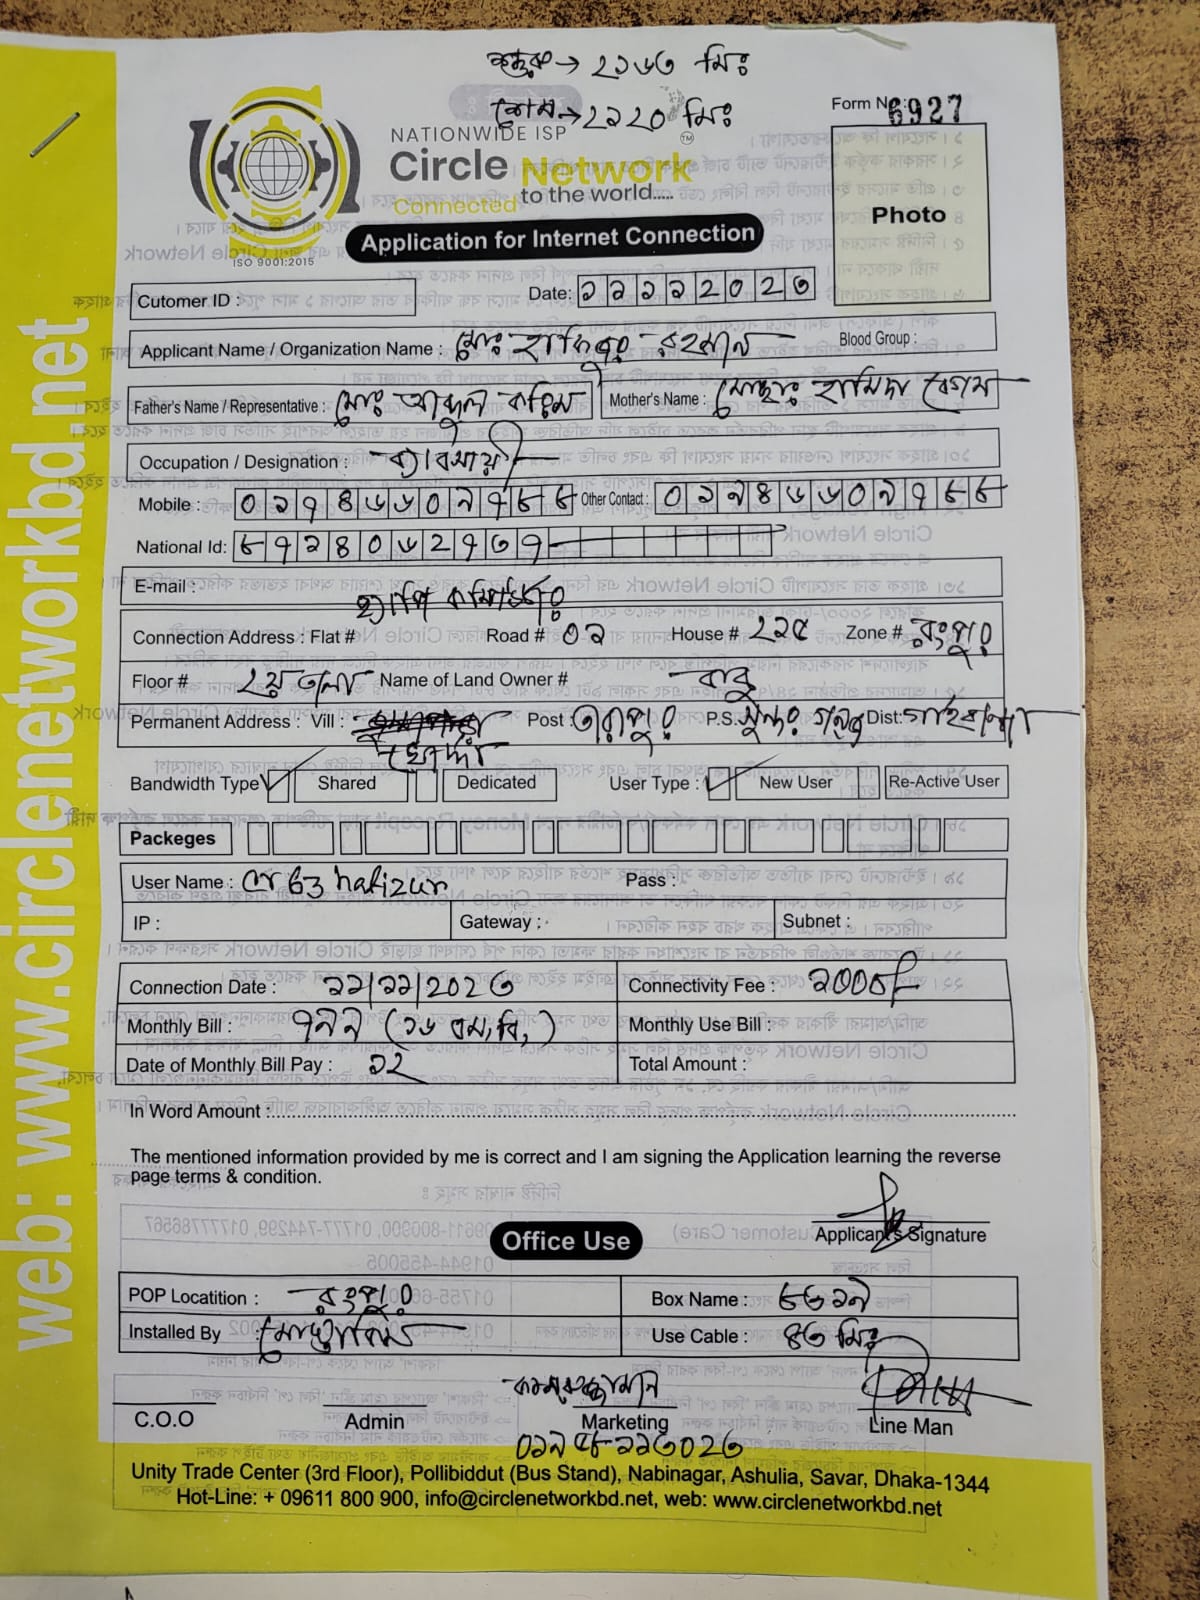 শুরু→ ২১৬৩ মিঃ
শেষ→ ২১২০ মিঃ
Form No: 6927
NATIONWIDE ISP
Circle Network
Connected to the world.....
ISO 9001:2015
Photo
Application for Internet Connection
Cutomer ID :
Date: ১১১১2023
Applicant Name / Organization Name : মোঃ হাফিজুর রহমান Blood Group :
Father's Name / Representative : মোঃ আব্দুল করিম Mother's Name : মোছাঃ হামিদা বেগম
Occupation / Designation : ব্যাবসায়ী
Mobile : ০১৭৪৬৬০৯৭৮৮ Other Contact : ০১৯৪৬৬০৯৭৮৮
National Id: ৮৭২৪০৬২৭৩৭
E-mail :
হ্যাপি
Connection Address : Flat # Road # ০২ House # ২২৫ Zone # রংপুর
Floor # ২য় তলা Name of Land Owner # বাবু
Permanent Address : Vill : Post : তারাপুর P.S. সুন্দরগঞ্জ Dist: গাইবান্ধা
Bandwidth Type Shared Dedicated User Type : New User Re-Active User
Packeges
User Name : Pass :
IP : Gateway : Subnet :
Connection Date : ১১/১১/2023 Connectivity Fee : ১০০০/-
Monthly Bill : ৭৯৯ (১৬ এম,বি,) Monthly Use Bill :
Date of Monthly Bill Pay : ১২ Total Amount :
In Word Amount :
The mentioned information provided by me is correct and I am signing the Application learning the reverse
page terms & condition.
Applicant's Signature
Office Use
POP Locatition : রংপুর Box Name : ৮৩১৯
Installed By মোস্তাকিম Use Cable : ৪৩ মিঃ
কামরুজ্জামান
C.O.O Admin Marketing Line Man
Unity Trade Center (3rd Floor), Pollibiddut (Bus Stand), Nabinagar, Ashulia, Savar, Dhaka-1344
Hot-Line: + 09611 800 900, info@circlenetworkbd.net, web: www.circlenetworkbd.net
web: www.circlenetworkbd.net